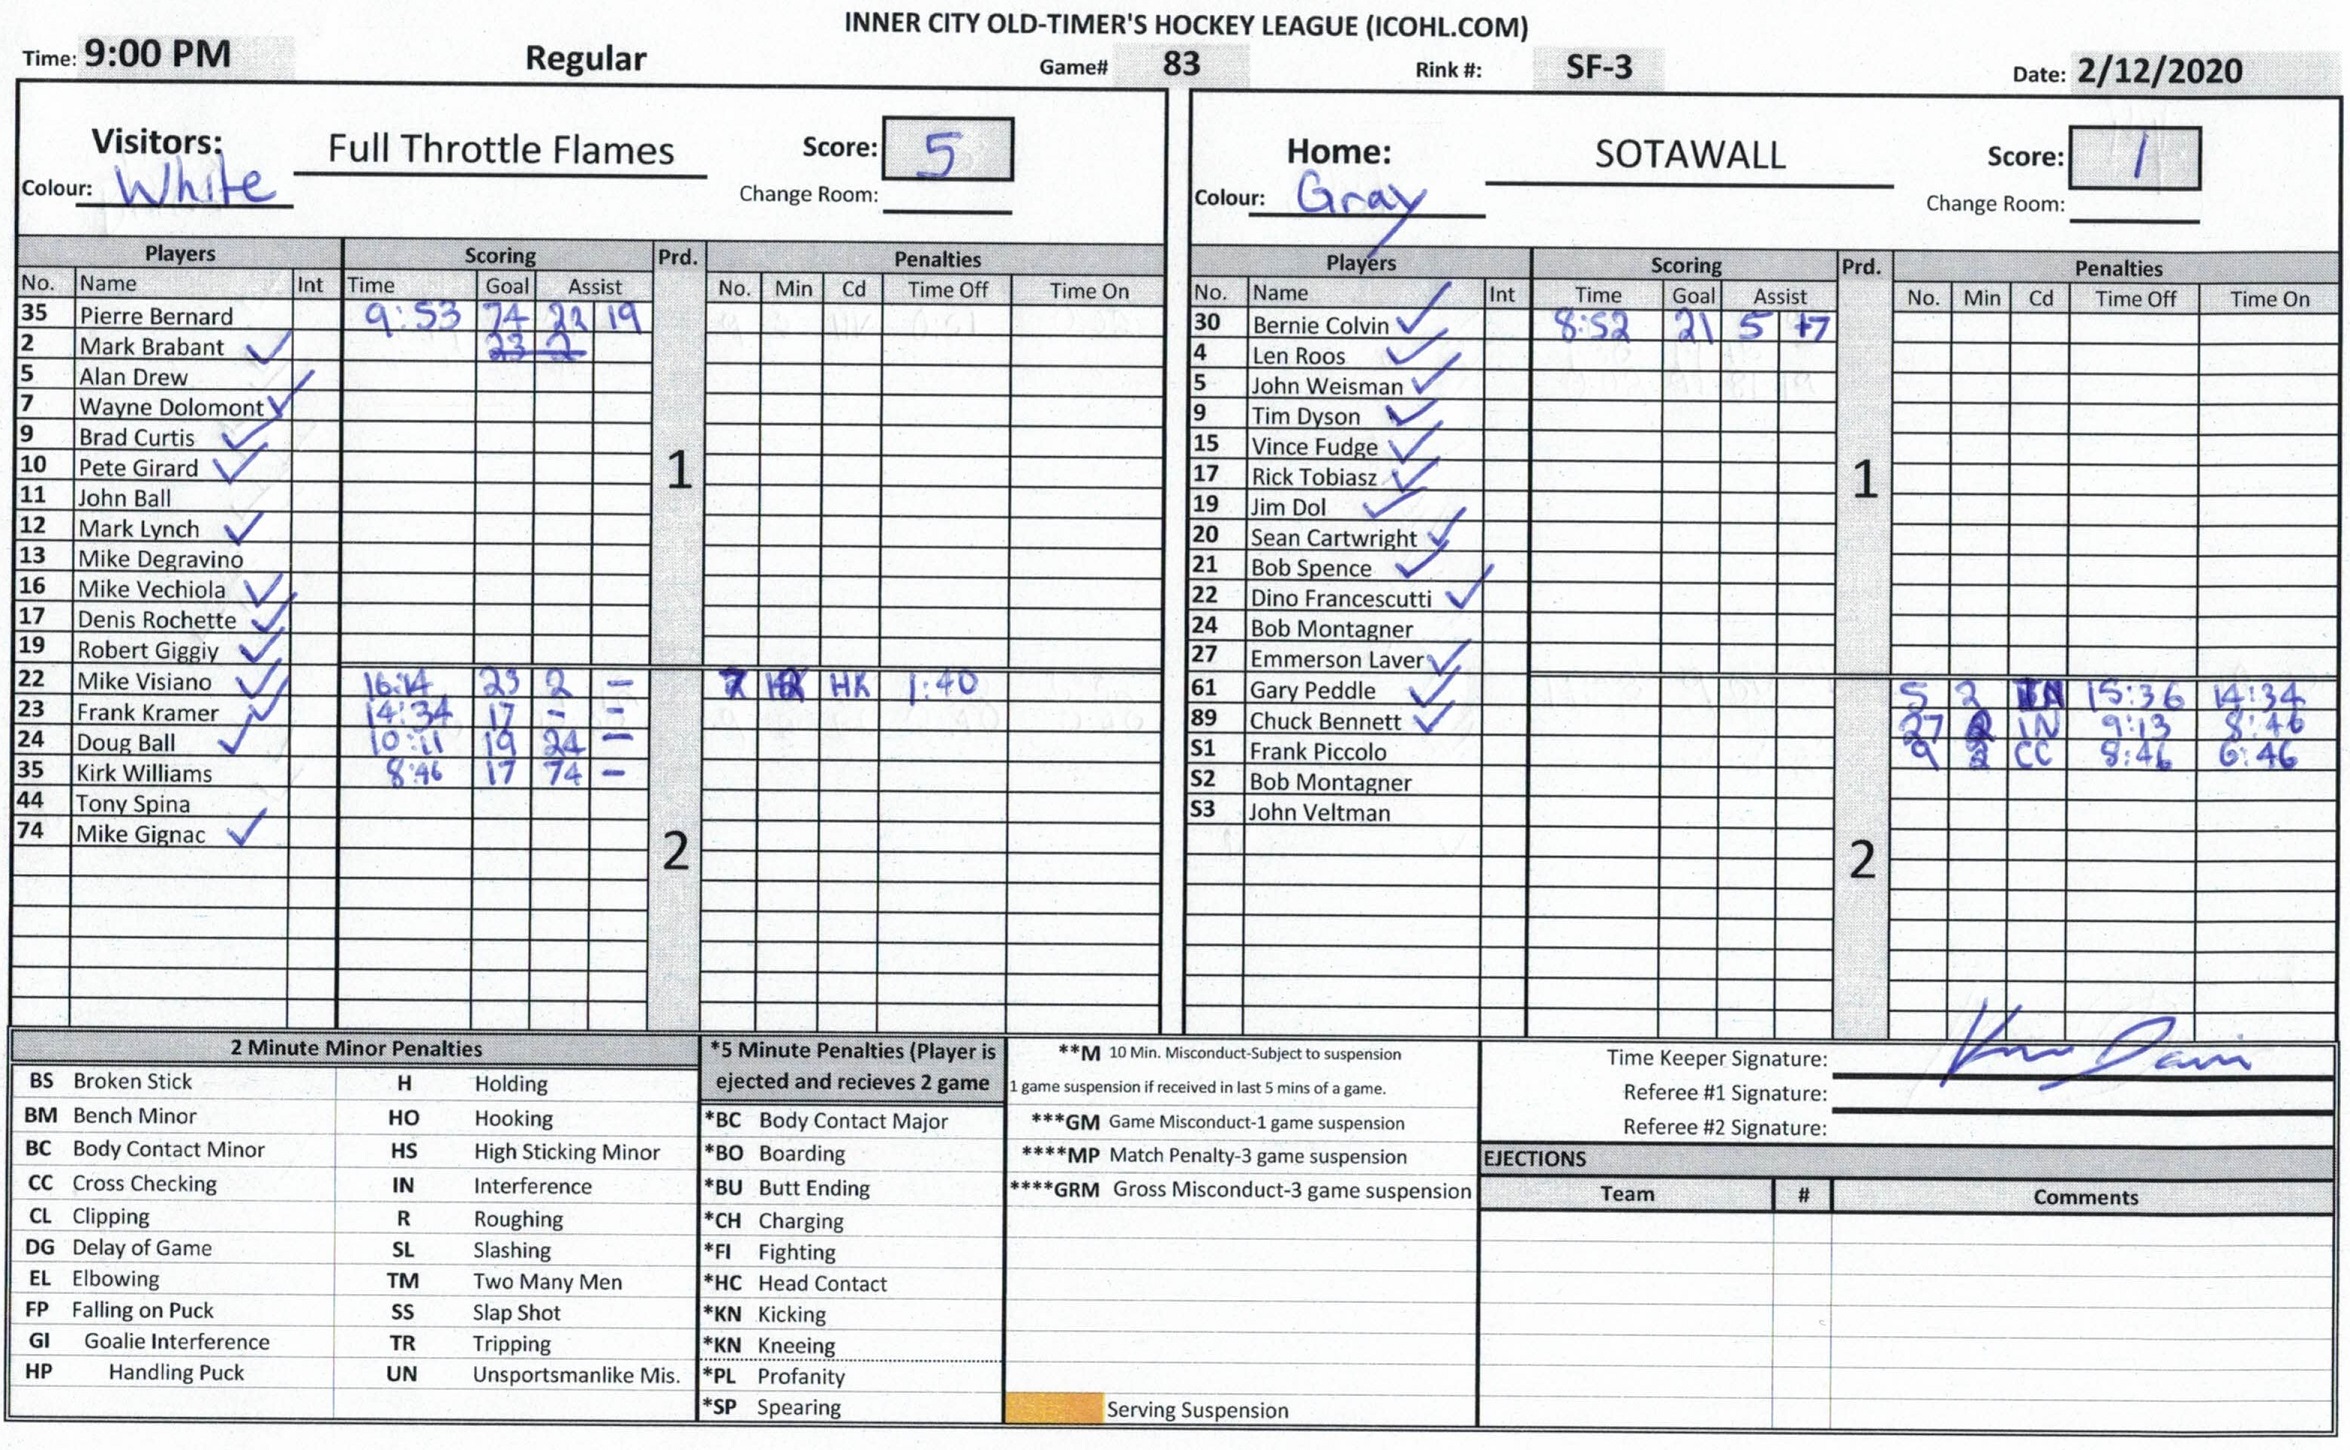 INNER CITY OLD-TIMER'S HOCKEY LEAGUE (ICOHL.COM)
Time: 9:00 PM Regular Game# 83 Rink #: SF-3 Date: 2/12/2020
Visitors: Full Throttle Flames Score: 5
Colour: White Change Room:
Players Scoring Prd. Penalties
No. Name Int Time Goal Assist No. Min Cd Time Off Time On
35 Pierre Bernard 9:53 74 23 19
2 Mark Brabant 23 2
5 Alan Drew
7 Wayne Dolomont
9 Brad Curtis
10 Pete Girard
1
11 John Ball
12 Mark Lynch
13 Mike Degravino
16 Mike Vechiola
17 Denis Rochette
19 Robert Giggiy
22 Mike Visiano 16:14 23 2 - 7 HK 1:40
23 Frank Kramer 14:34 17 - -
24 Doug Ball 10:11 19 24 -
35 Kirk Williams 8:46 17 74 -
44 Tony Spina
74 Mike Gignac
2
Home: SOTAWALL Score: 1
Colour: Gray Change Room:
Players Scoring Prd. Penalties
No. Name Int Time Goal Assist No. Min Cd Time Off Time On
30 Bernie Colvin 8:52 21 5 17
4 Len Roos
5 John Weisman
9 Tim Dyson
15 Vince Fudge
17 Rick Tobiasz
1
19 Jim Dol
20 Sean Cartwright
21 Bob Spence
22 Dino Francescutti
24 Bob Montagner
27 Emmerson Laver
61 Gary Peddle 5 2 IN 15:36 14:34
89 Chuck Bennett 27 2 IN 9:13 8:46
S1 Frank Piccolo 9 2 CC 8:46 6:46
S2 Bob Montagner
S3 John Veltman
2
2 Minute Minor Penalties
BS Broken Stick H Holding
BM Bench Minor HO Hooking
BC Body Contact Minor HS High Sticking Minor
CC Cross Checking IN Interference
CL Clipping R Roughing
DG Delay of Game SL Slashing
EL Elbowing TM Two Many Men
FP Falling on Puck SS Slap Shot
GI Goalie Interference TR Tripping
HP Handling Puck UN Unsportsmanlike Mis.
*5 Minute Penalties (Player is
ejected and recieves 2 game
*BC Body Contact Major
*BO Boarding
*BU Butt Ending
*CH Charging
*FI Fighting
*HC Head Contact
*KN Kicking
*KN Kneeing
*PL Profanity
*SP Spearing
**M 10 Min. Misconduct-Subject to suspension
1 game suspension if received in last 5 mins of a game.
***GM Game Misconduct-1 game suspension
****MP Match Penalty-3 game suspension
****GRM Gross Misconduct-3 game suspension
Serving Suspension
Time Keeper Signature:
Referee #1 Signature:
Referee #2 Signature:
EJECTIONS
Team # Comments